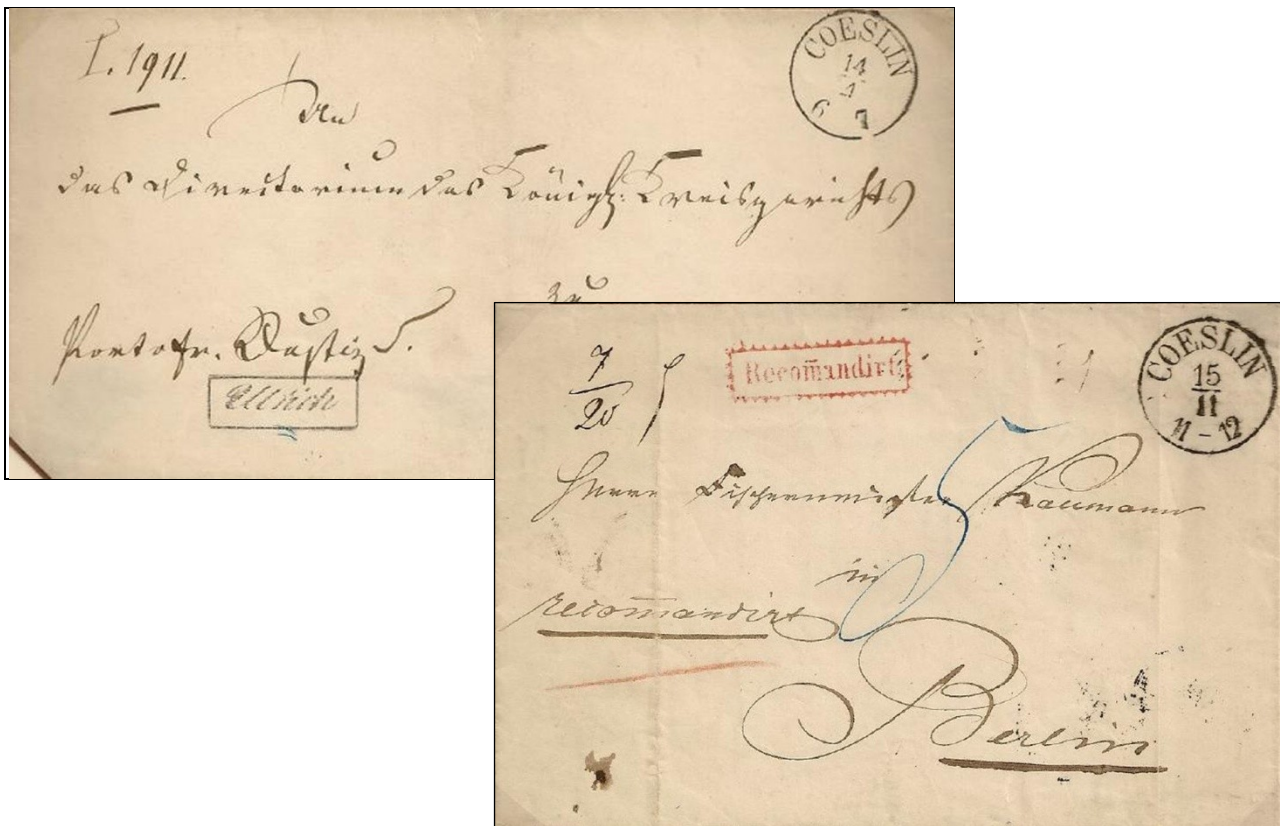 I. 1911.
COESLIN
14
6 7
An
das Directorium des Königl: Kreisgerichts
zu
Portofr. Justiz S.
Ullrich
7
20
Recom̄andirt
COESLIN
15
11
11-12
5
Herrn Fischermeister Naumann
in
recom̄andirt
Berlin